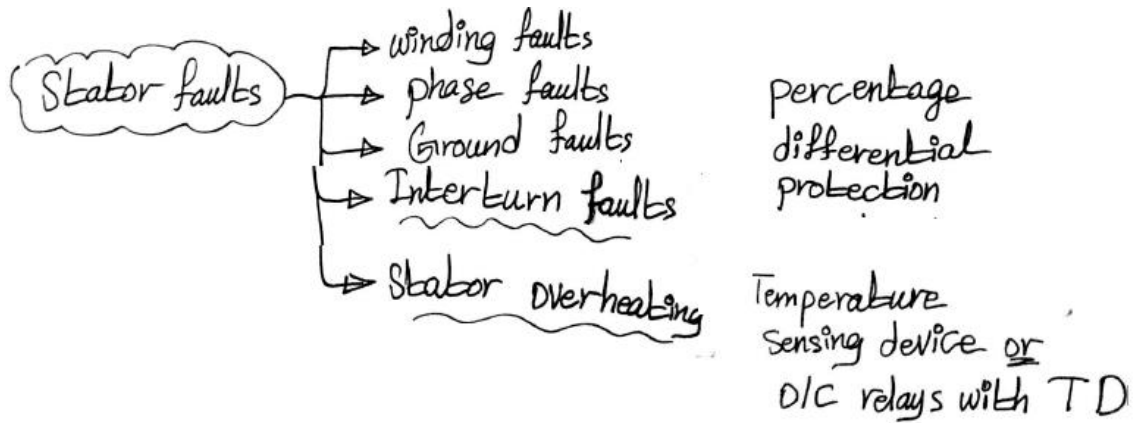 Stator faults
winding faults
phase faults
Ground faults
Interturn faults
Stator overheating
percentage
differential
protection
Temperature
sensing device or
O/C relays with TD